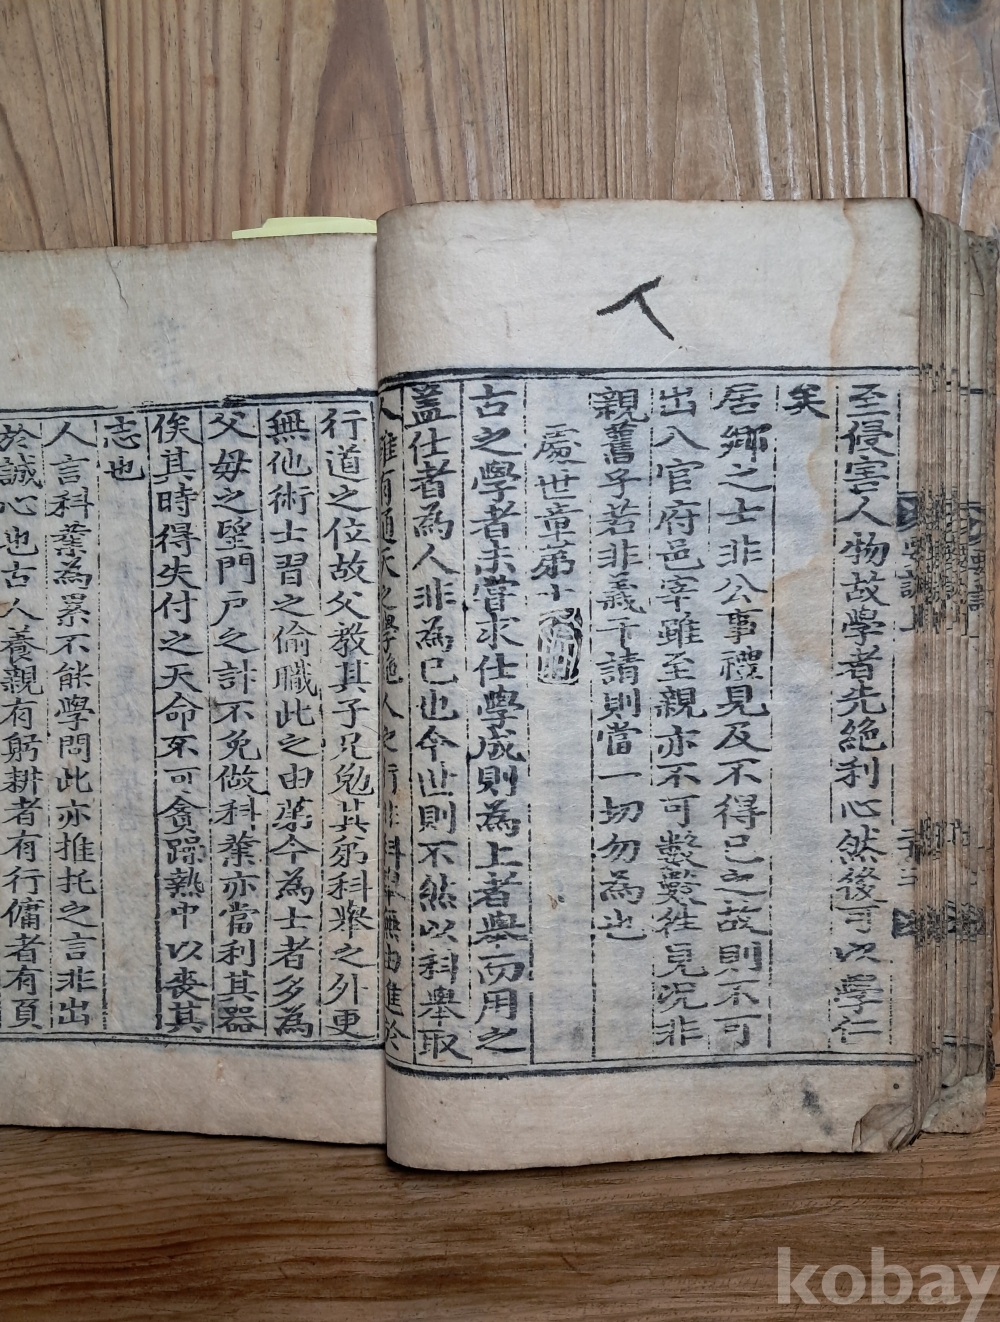 至侵害人物故學者先絶利心然後可以學仁
矣
居鄉之士非公事禮見及不得已之故則不可
出入官府邑宰雖至親亦不可數數徃見况非
親舊乎若非義干請則當一切勿爲也
處世章第十
古之學者未嘗求仕學成則爲上者舉而用之
蓋仕者爲人非爲己也今世則不然以科舉取
人雖有通天之學絶人之行非科舉無由進於
行道之位故父教其子兄勉其弟科舉之外更
無他術士習之偷職此之由第今爲士者多爲
父母之望門戶之計不免做科業亦當利其器
俟其時得失付之天命不可貪躁熱中以喪其
志也
人言科業爲累不能學問此亦推托之言非出
於誠心也古人養親有躬耕者有行傭者有負
kobay